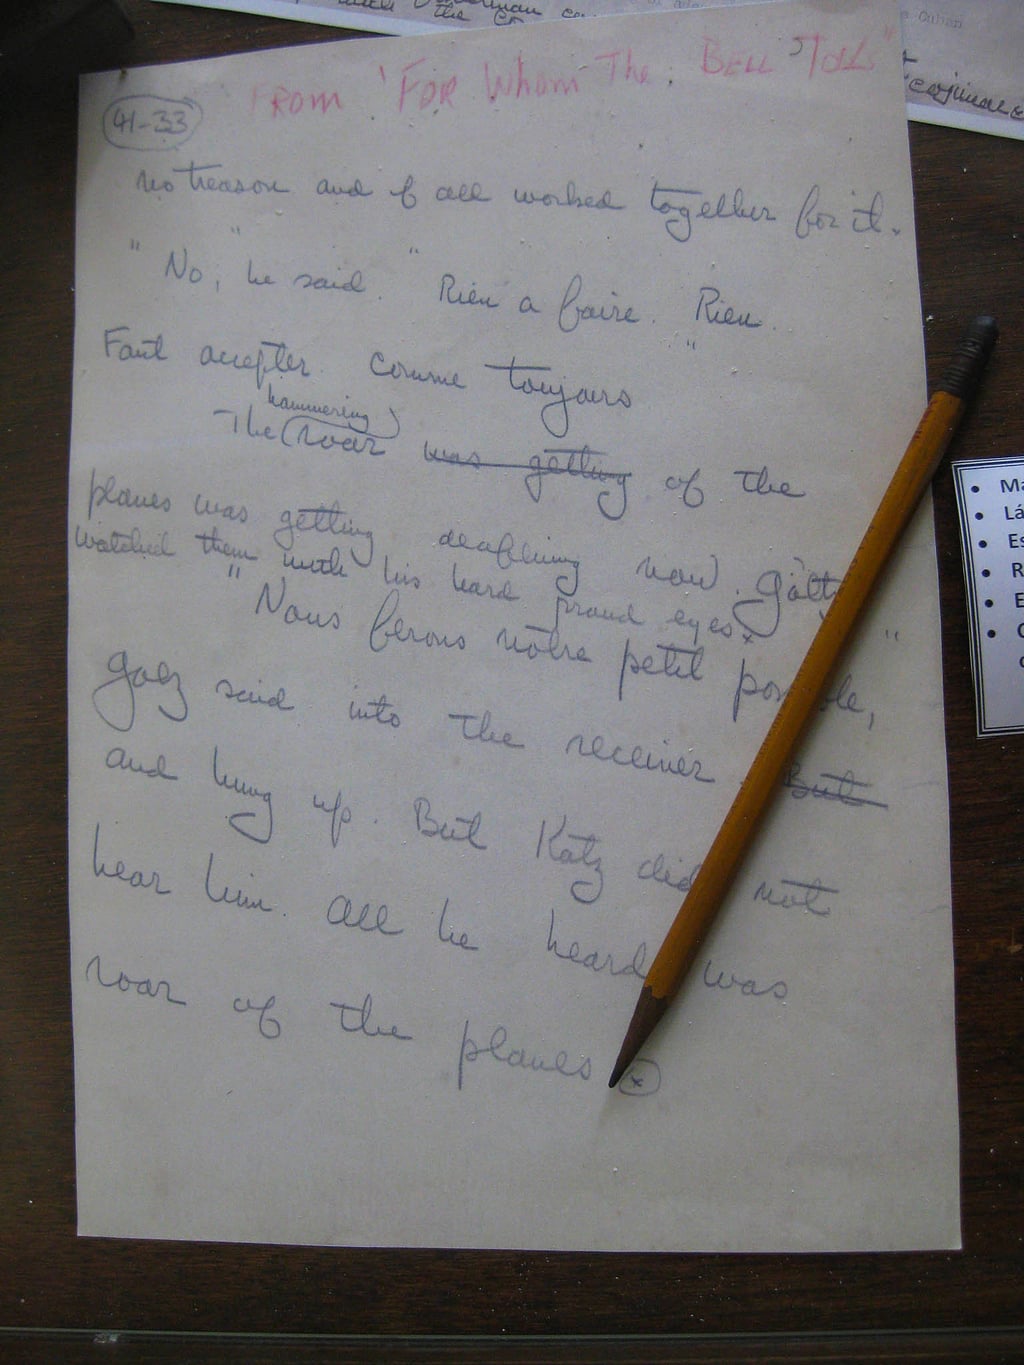 the
Cuban
cojimar
From "For Whom The Bell Tolls"
41-33
no treason and if all worked together for it.
"No," he said. "Rien a faire. Rien.
Faut accepter. Comme toujours"
hammering
The roar was getting of the
planes was getting deafening now. Goltz
watched them with his hard proud eyes.
"Nous ferons nôtre petit possible,"
Golz said into the receiver But
and hung up. But Katz did not
hear him. All he heard was
roar of the planes x
• Ma
• Lá
• Es
• R
• E
• C